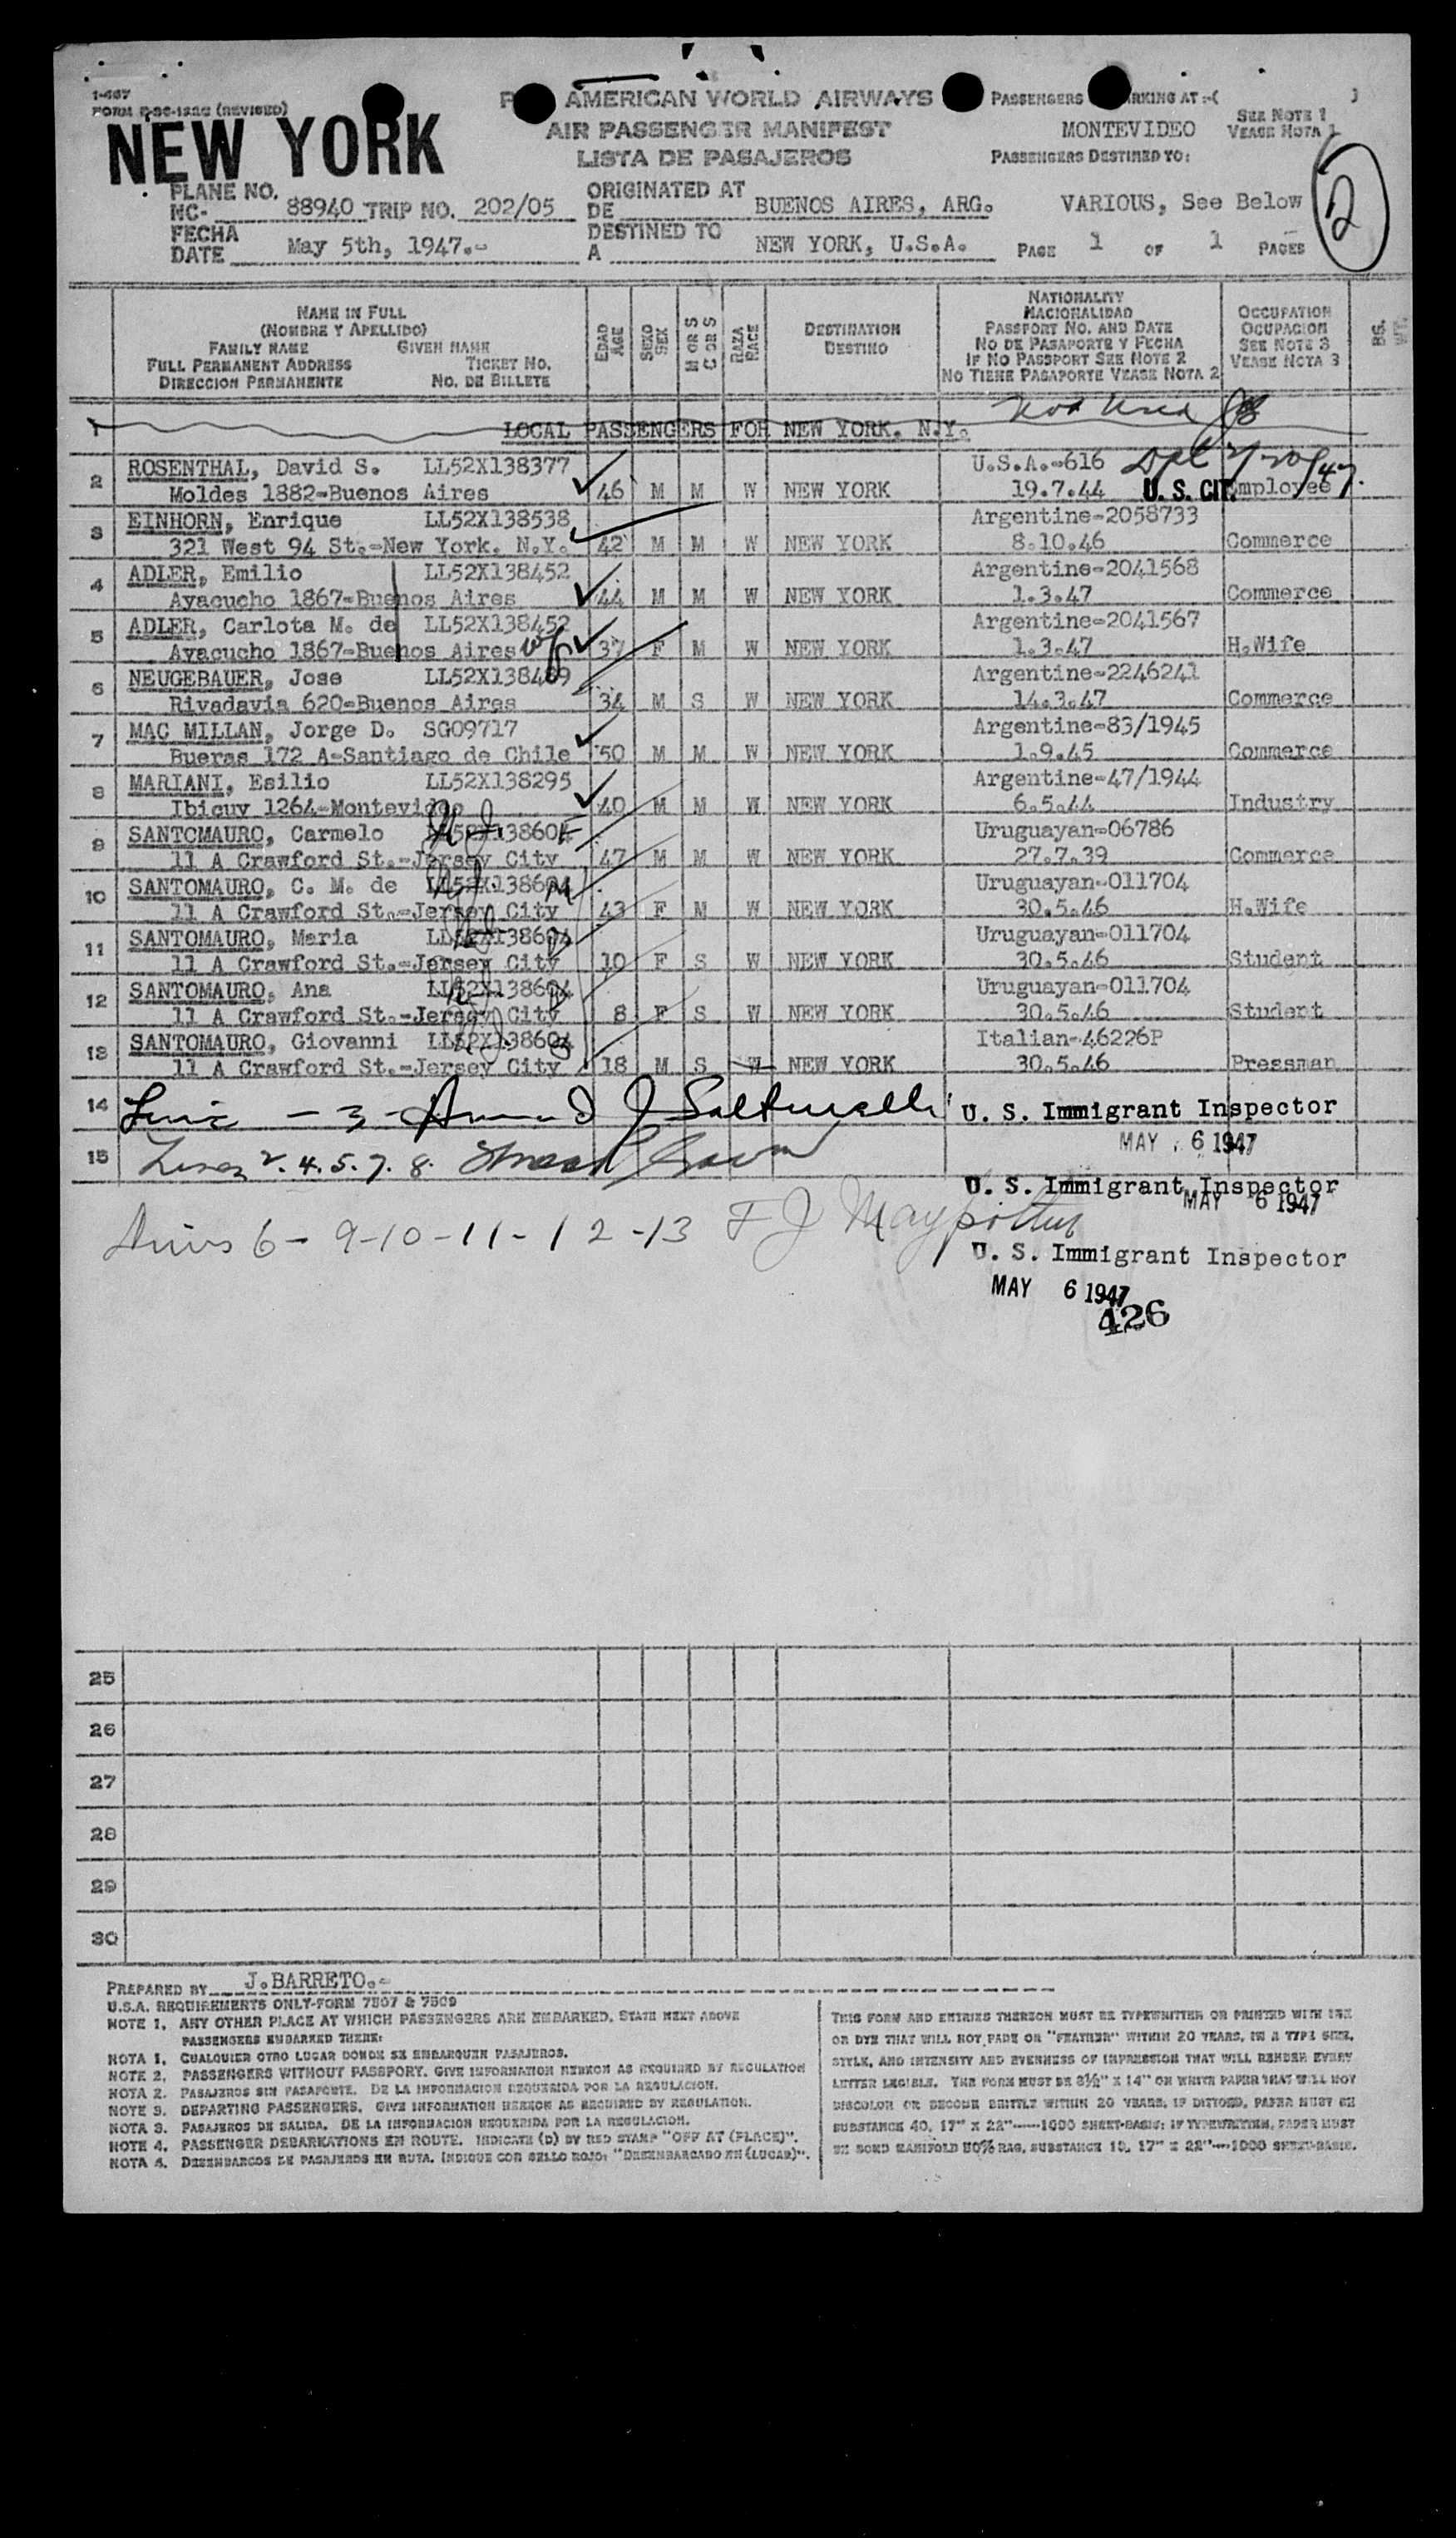 1-467
FORM (REVISED)
NEW YORK
AMERICAN WORLD AIRWAYS
AIR PASSENGER MANIFEST
LISTA DE PASAJEROS
PASSENGERS AT :-( )
MONTEVIDEO
SEE NOTE 1
VEASE NOTA 1
PASSENGERS DESTINED TO:
VARIOUS, See Below
2
PLANE NO.
NC- 88940 TRIP NO. 202/05
ORIGINATED AT
DE BUENOS AIRES, ARG.
FECHA
DATE May 5th, 1947.-
DESTINED TO
A NEW YORK, U.S.A.
PAGE 1 OF 1 PAGES
NAME IN FULL
(NOMBRE Y APELLIDO)
FAMILY NAME GIVEN NAME
FULL PERMANENT ADDRESS TICKET NO.
DIRECCION PERMANENTE NO. DE BILLETE
EDAD
AGE
SEXO
SEX
M OR S
C OR S
RAZA
RACE
DESTINATION
DESTINO
NATIONALITY
NACIONALIDAD
PASSPORT NO. AND DATE
NO DE PASAPORTE Y FECHA
IF NO PASSPORT SEE NOTE 2
NO TIENE PASAPORTE VEASE NOTA 2
OCCUPATION
OCUPACION
SEE NOTE 3
VEASE NOTA 3
Not Used
1 LOCAL PASSENGERS FOR NEW YORK. N.Y.
2 ROSENTHAL, David S. LL52X138377 U.S.A.-616
Moldes 1882-Buenos Aires 46 M M W NEW YORK 19.7.44 U. S. CIT. Employee
3 EINHORN, Enrique LL52X138538 Argentine-2058733
321 West 94 St.-New York. N.Y. 42 M M W NEW YORK 8.10.46 Commerce
4 ADLER, Emilio LL52X138452 Argentine-2041568
Ayacucho 1867-Buenos Aires 44 M M W NEW YORK 1.3.47 Commerce
5 ADLER, Carlota M. de LL52X138452 Argentine-2041567
Ayacucho 1867-Buenos Aires wf 37 F M W NEW YORK 1.3.47 H.Wife
6 NEUGEBAUER, Jose LL52X138469 Argentine-2246241
Rivadavia 620-Buenos Aires 34 M S W NEW YORK 14.3.47 Commerce
7 MAC MILLAN, Jorge D. SG09717 Argentine-83/1945
Bueras 172 A-Santiago de Chile 50 M M W NEW YORK 1.9.45 Commerce
8 MARIANI, Esilio LL52X138295 Argentine-47/1944
Ibicuy 1264-Montevideo 40 M M W NEW YORK 6.5.44 Industry
9 SANTOMAURO, Carmelo LL52X138604 Uruguayan-06786
11 A Crawford St.-Jersey City 47 M M W NEW YORK 27.7.39 Commerce
10 SANTOMAURO, C. M. de LL52X138604 Uruguayan-011704
11 A Crawford St.-Jersey City 43 F M W NEW YORK 30.5.46 H.Wife
11 SANTOMAURO, Maria LL52X138604 Uruguayan-011704
11 A Crawford St.-Jersey City 10 F S W NEW YORK 30.5.46 Student
12 SANTOMAURO, Ana LL52X138604 Uruguayan-011704
11 A Crawford St.-Jersey City 8 F S W NEW YORK 30.5.46 Student
13 SANTOMAURO, Giovanni LL52X138604 Italian-46226P
11 A Crawford St.-Jersey City 18 M S W NEW YORK 30.5.46 Pressman
14 Line - 3 - J U. S. Immigrant Inspector
MAY 6 1947
15 Lines 2. 4. 5. 7. 8.
U. S. Immigrant Inspector
MAY 6 1947
6 - 9-10-11-12-13 F J
U. S. Immigrant Inspector
MAY 6 1947
426
25
26
27
28
29
30
PREPARED BY J.BARRETO.-
U.S.A. REQUIREMENTS ONLY-FORM 7507 & 7509
NOTE 1. ANY OTHER PLACE AT WHICH PASSENGERS ARE EMBARKED, STATE NEXT ABOVE
PASSENGERS EMBARKED THERE:
NOTA 1. CUALQUIER OTRO LUGAR DONDE SE EMBARQUEN PASAJEROS.
NOTE 2. PASSENGERS WITHOUT PASSPORT. GIVE INFORMATION HEREON AS REQUIRED BY REGULATION
NOTA 2. PASAJEROS SIN PASAPORTE. DE LA INFORMACION REQUERIDA POR LA REGULACION.
NOTE 3. DEPARTING PASSENGERS. GIVE INFORMATION HEREON AS REQUIRED BY REGULATION.
NOTA 3. PASAJEROS DE SALIDA. DE LA INFORMACION REQUERIDA POR LA REGULACION.
NOTE 4. PASSENGER DEBARKATIONS EN ROUTE. INDICATE (D) BY RED STAMP "OFF AT (PLACE)".
NOTA 4. DESEMBARCOS DE PASAJEROS EN RUTA. INDIQUE CON SELLO ROJO: "DESEMBARCADO EN (LUGAR)".
THIS FORM AND ENTRIES THEREON MUST BE TYPEWRITTEN OR PRINTED WITH INK
OR DYE THAT WILL NOT FADE OR "FEATHER" WITHIN 20 YEARS, IN A TYPE SIZE,
STYLE, AND INTENSITY AND EVENNESS OF IMPRESSION THAT WILL RENDER EVERY
LETTER LEGIBLE. THE FORM MUST BE 8½" X 14" ON WHITE PAPER THAT WILL NOT
DISCOLOR OR BECOME BRITTLE WITHIN 20 YEARS. IF DITTOED, PAPER MUST BE
SUBSTANCE 40, 17" X 22"-----1000 SHEET-BASIS: IF TYPEWRITTEN, PAPER MUST
BE BOND MANIFOLD 50% RAG, SUBSTANCE 16, 17" X 22"---1000 SHEET-BASIS.